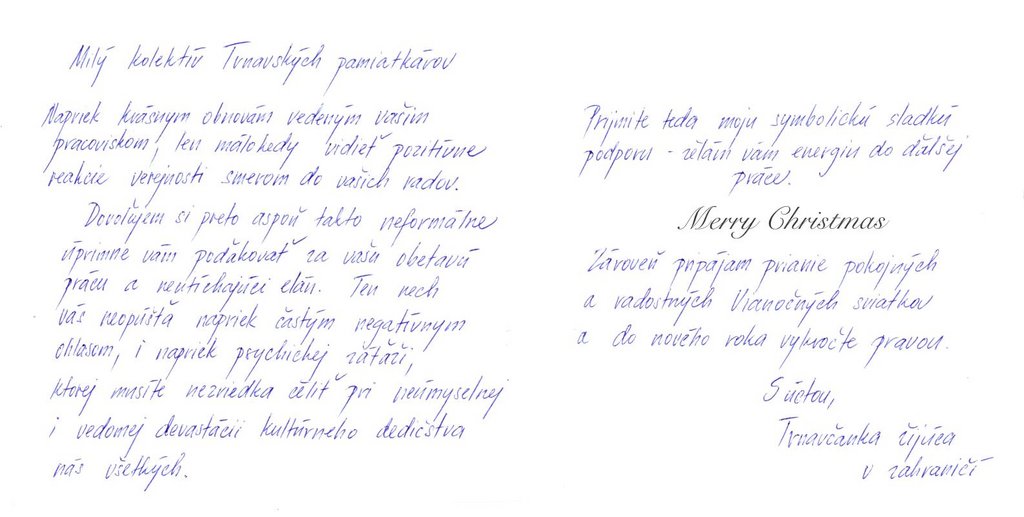 Milý kolektív Trnavských pamiatkárov
Napriek krásnym obnovám vedeným vašim
pracoviskom, len málokedy vidieť pozitívne
reakcie verejnosti smerom do vašich radov.
Dovoľujem si preto aspoň takto neformálne
úprimne vám poďakovať za vašu obetavú
prácu a neutíchajúci elán. Ten nech
vás neopúšťa napriek častým negatívnym
ohlasom, i napriek psychickej záťaži,
ktorej musíte nezriedka čeliť pri neúmyselnej
i vedomej devastácii kultúrneho dedičstva
nás všetkých.
Prijmite teda moju symbolickú sladkú
podporu - želám vám energiu do ďalšej
práce.
Merry Christmas
Zároveň pripájam prianie pokojných
a radostných Vianočných sviatkov
a do nového roka vykročte pravou.
S úctou,
Trnavčanka žijúca
v zahraničí